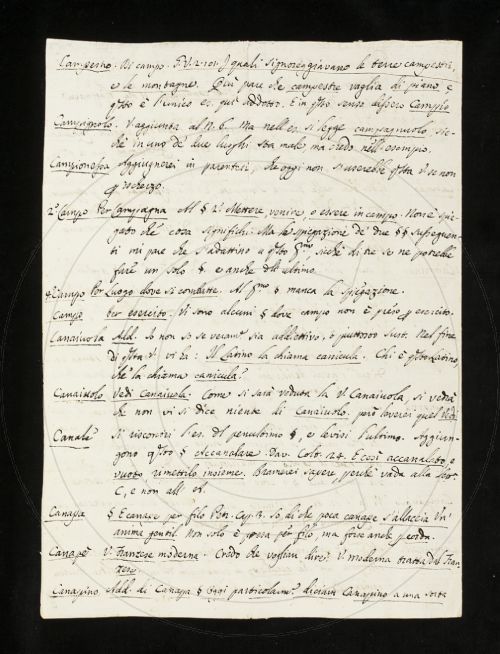 Campestro. Di campo. I quali signoreggiavano le terre campestri,
e le montagne. Qui pare che campestre vaglia di piano, e
q̃sto è l'unico es. qui addotto. E in q̃sto senso dissero Campio
Campagnolo. V. aggiunta al N. 6. Ma nell'es. si legge campagnuolo, sic-
chè in uno de' due luoghi sta male, ma credo nell'esempio.
Campionessa Aggiugnerei in parentesi, che oggi non s'userebbe q̃sta v. se non
p ischerzo.
Campo Per Campagna Al § 2. Mettere, venire, o essere in campo. Non è spie-
gato che cosa significhi. Ma le spiegazioni de' due §§ susseguen-
ti mi pare che s'adattino a q̃sto sicchè di tre se ne potrebbe
fare un solo §. e anche dell'ultimo.
Campo Per Luogo dove si combatte. Al § manca la spiegazione.
Campo per esercito. Vi sono alcuni § dove campo non è preso p esercito.
Canaiuola Add. Sò non so se veram.te sia addiettivo, o piuttosto sust. Nel fine
di q̃sta v. vi va: Il Latino la chiama canicula. Chi è q̃sto Latino,
che la chiama canicula?
Canaiuolo Vedi Canaiuola. Come si sarà veduta la V. Canaiuola, si vedrà
che non vi si dice niente di Canaiuolo. però leverei quel Vedi
Canale Si riscontri l'es. del penultimo §, e levisi l'ultimo. Aggiun-
gono q̃sto § Accanalare. Dav. Colt. 24. E così accanalato, e
vuoto rimettilo insieme. Bramerei sapere, perchè vada alla
C, e non all' A.
Canapa § E canape per filo Petr. Cap. 3. So di che poca canape s'allaccia Un'
anima gentil. Non solo è presa per filo, ma forse anche p corda.
Canapè V. Franzese moderna. Credo che voglian dire: V. moderna tratta dal Fran-
zese
Canapino Add. di Canapa § Oggi particolarm.te diciam Canapino a una sorta